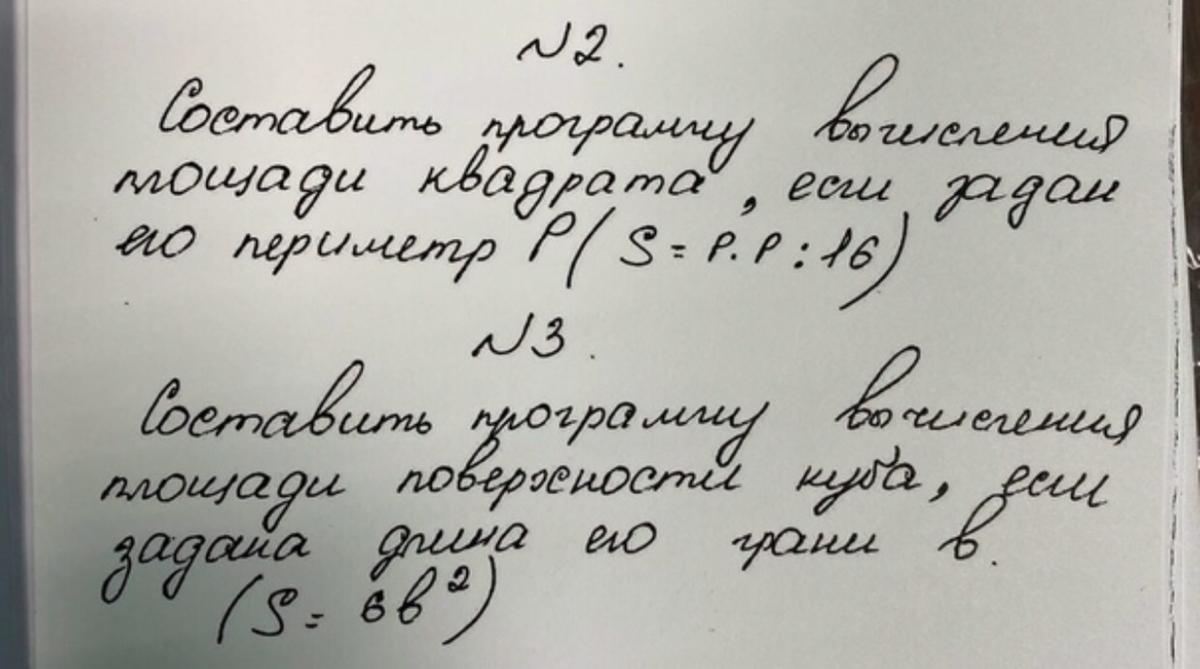 №2.
Составить программу вычисления
площади квадрата, если задан
его периметр P( S = P·P : 16)
№3.
Составить программу вычисления
площади поверхности куба, если
задана длина его грани в.
(S = 6в²)